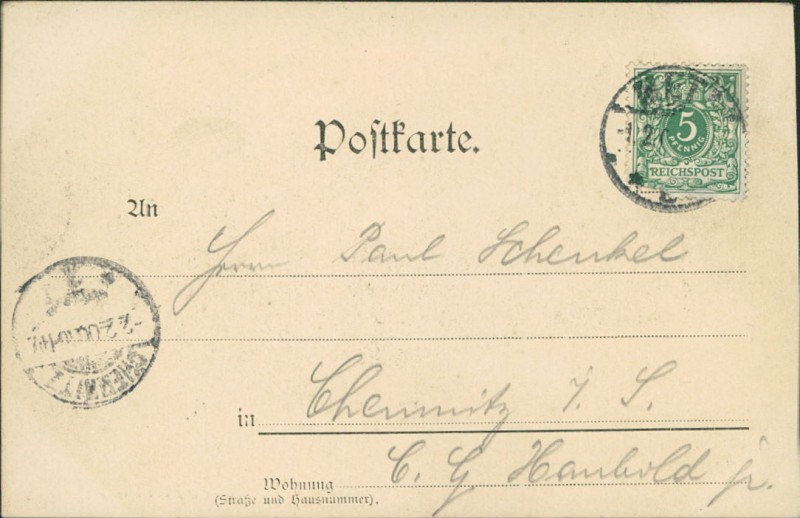 5
PFENNIG
REICHSPOST
Postkarte.
An
Herrn Paul Schenkel
2.2.00
CHEMNITZ
in Chemnitz i. S.
C. G. Haubold jr.
Wohnung
(Straße und Hausnummer).